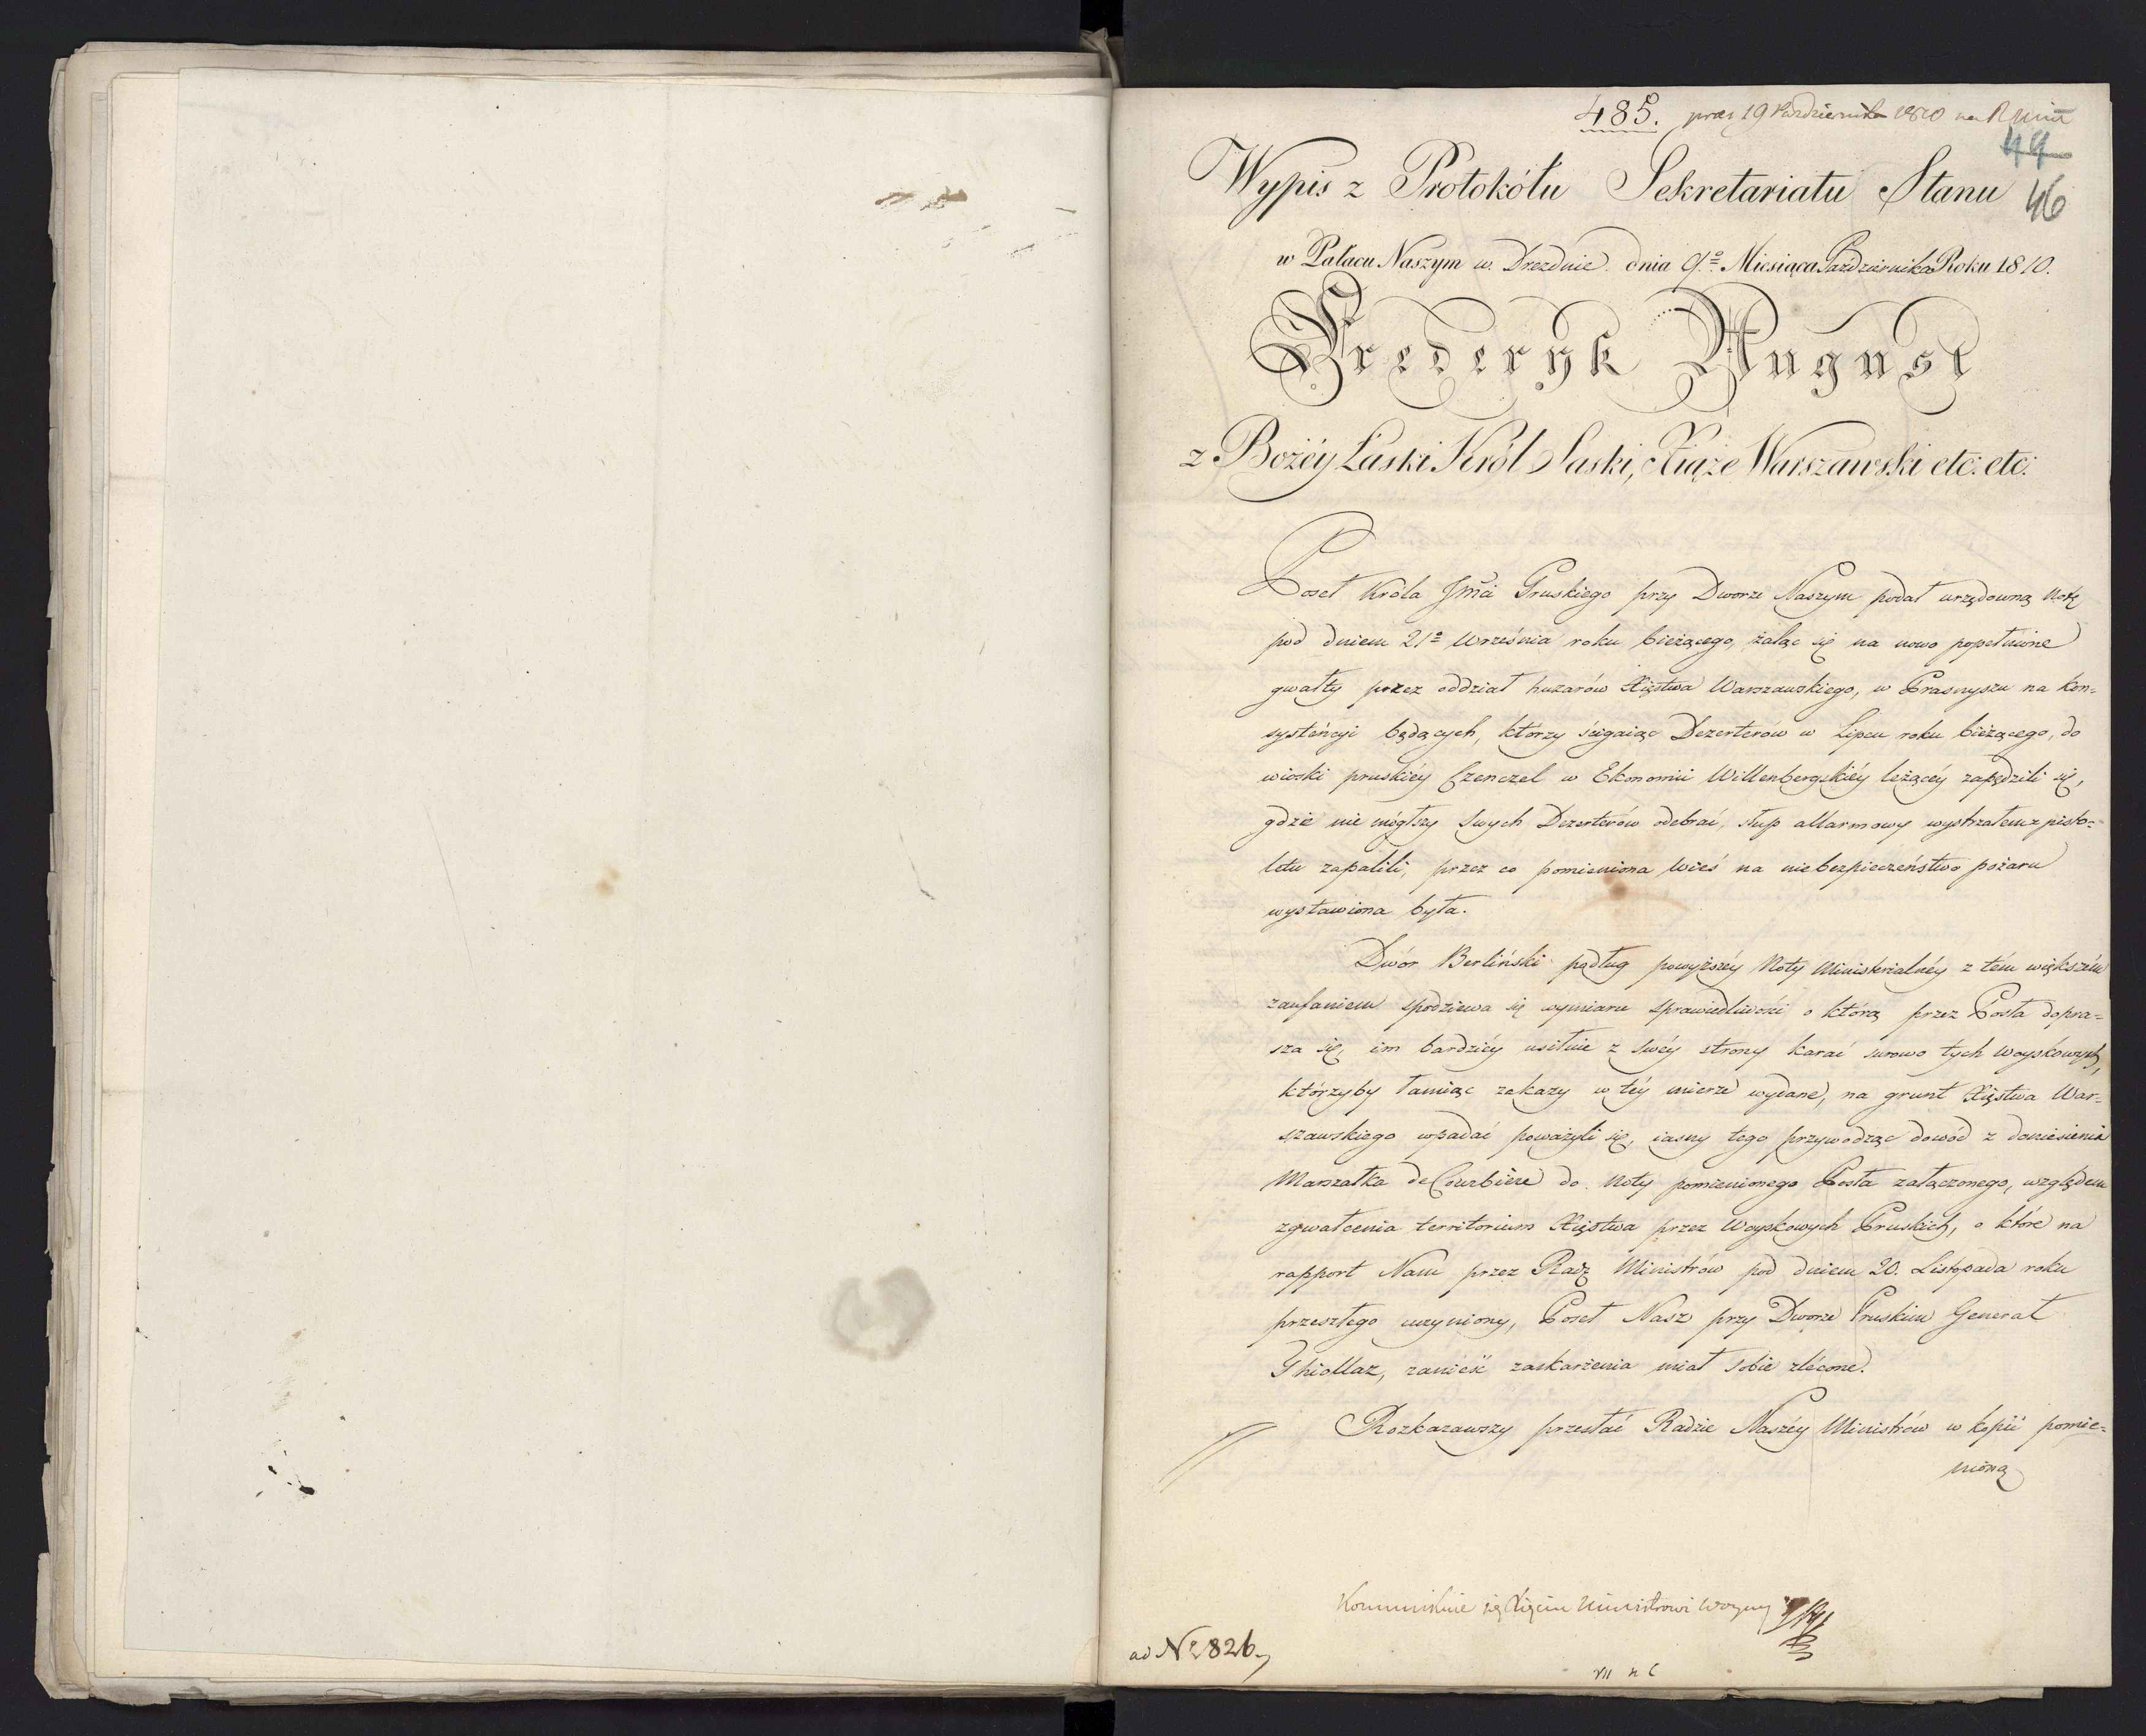 485. præs 19 Października 1810 na R Min
44
46
Wypis z Protokółu Sekretariatu Stanu
w Pałacu Naszym w Dreźnie dnia 9º Miesiąca Października Roku 1810.
Fryderyk August
z Bożéy Łaski Król Saski, Xiąże Warszawski etc: etc:
Poseł Króla Jmći Pruskiego przy Dworze Naszym podał urzędowną Notę
pod dniem 21º Września roku bieżącego, żaląc się na nowo popełnione
gwałty przez oddział huzarów Xięstwa Warszawskiego, w Prasnyszu na kon-
systéncyi będących, którzy ścigaiąc Dezerterów w Lipcu roku bieżącego, do
wioski pruskiéy Czenczel w Ekonomii Willenbergskiéy leżącéy zapędzili się,
gdzie nie mógłszy swych Dezerterów odebrać, słup allarmowy wystrzałem z pisto-
letu zapalili, przez co pomieniona wieś na niebezpieczeństwo pożaru
wystawiona była.
Dwór Berliński podług powyższéy Noty Ministerialnéy z tém większém
zaufaniem spodziewa się wymiaru sprawiedliwości o którą przez Posła dopra-
sza się, im bardziéy usilnie z swéy strony karać surowo tych woyskowych,
którzyby łamiąc zakazy w téy mierze wydane, na grunt Xięstwa War-
szawskiego wpadać poważyli się, iasny tego przywodząc dowód z doniesienia
Marszałka de Courbière do Noty pomienionego Posła załączonego, względem
zgwałcenia territorium Xięstwa przez Woyskowych Pruskich, o które na
rapport Nam przez Radę Ministrów pod dniem 20. Listopada roku
przeszłego uczyniony, Poseł Nasz przy Dworze Pruskim Generał
Thiollaz, zanieść zaskarżenia miał sobie zlécone.
Rozkazawszy przesłać Radzie Naszéy Ministrów w kopii pomie-
nioną
Kommunikuie się Xięciu Ministrowi Woyny
ad Nº 826
VII n C